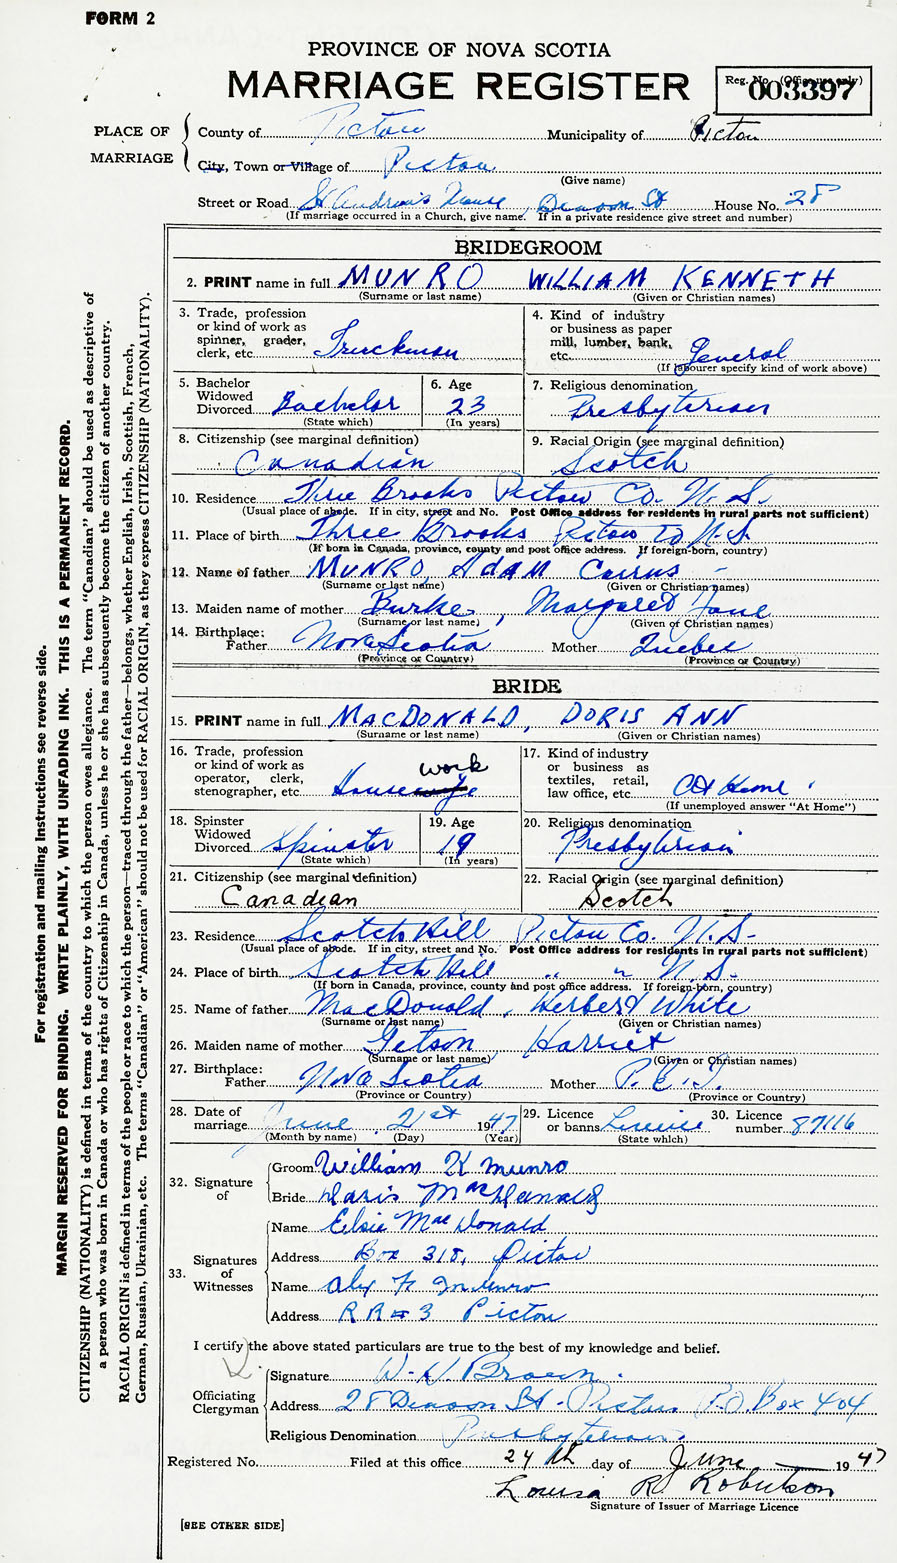 FORM 2
PROVINCE OF NOVA SCOTIA
MARRIAGE REGISTER
Reg. No. (Office use only)
003397
PLACE OF MARRIAGE
County of Pictou Municipality of Pictou
City, Town or Village of Pictou
(Give name)
Street or Road St Andrew's Manse, Denoon St House No. 28
(If marriage occurred in a Church, give name. If in a private residence give street and number)
BRIDEGROOM
2. PRINT name in full MUNRO WILLIAM KENNETH
(Surname or last name) (Given or Christian names)
3. Trade, profession or kind of work as spinner, grader, clerk, etc. Truckman
4. Kind of industry or business as paper mill, lumber, bank, etc. General
(If labourer specify kind of work above)
5. Bachelor Widowed Divorced Bachelor
(State which)
6. Age 23
(In years)
7. Religious denomination Presbyterian
8. Citizenship (see marginal definition) Canadian
9. Racial Origin (see marginal definition) Scotch
10. Residence Three Brooks Pictou Co. N.S.
(Usual place of abode. If in city, street and No. Post Office address for residents in rural parts not sufficient)
11. Place of birth Three Brooks Pictou Co N.S.
(If born in Canada, province, county and post office address. If foreign-born, country)
12. Name of father MUNRO, ADAM Cairns
(Surname or last name) (Given or Christian names)
13. Maiden name of mother Burke, Margaret Jane
(Surname or last name) (Given or Christian names)
14. Birthplace: Father Nova Scotia Mother Quebec
(Province or Country) (Province or Country)
BRIDE
15. PRINT name in full MACDONALD, DORIS ANN
(Surname or last name) (Given or Christian names)
16. Trade, profession or kind of work as operator, clerk, stenographer, etc. House work
17. Kind of industry or business as textiles, retail, law office, etc. At Home
(If unemployed answer "At Home")
18. Spinster Widowed Divorced Spinster
(State which)
19. Age 19
(In years)
20. Religious denomination Presbyterian
21. Citizenship (see marginal definition) Canadian
22. Racial Origin (see marginal definition) Scotch
23. Residence Scotch Hill Pictou Co. N.S.
(Usual place of abode. If in city, street and No. Post Office address for residents in rural parts not sufficient)
24. Place of birth Scotch Hill " " N.S.
(If born in Canada, province, county and post office address. If foreign-born, country)
25. Name of father MacDonald, Herbert White
(Surname or last name) (Given or Christian names)
26. Maiden name of mother Jetson, Harriet
(Surname or last name) (Given or Christian names)
27. Birthplace: Father Nova Scotia Mother P.E.I.
(Province or Country) (Province or Country)
28. Date of marriage June 21st 1947
(Month by name) (Day) (Year)
29. Licence or banns License
(State which)
30. Licence number 87116
32. Signature of
Groom William K Munro
Bride Doris MacDonald
33. Signatures of Witnesses
Name Elsie MacDonald
Address Box 318, Pictou
Name Alex F Munro
Address R R # 3 Pictou
I certify the above stated particulars are true to the best of my knowledge and belief.
Officiating Clergyman
Signature W. W Brown
Address 28 Denoon St - Pictou P.O. Box 404
Religious Denomination Presbyterian.
Registered No. Filed at this office 24th day of June 1947
Louisa R. Robertson
Signature of Issuer of Marriage Licence
[SEE OTHER SIDE]
For registration and mailing instructions see reverse side.
MARGIN RESERVED FOR BINDING. WRITE PLAINLY, WITH UNFADING INK. THIS IS A PERMANENT RECORD.
CITIZENSHIP (NATIONALITY) is defined in terms of the country to which the person owes allegiance. The term "Canadian" should be used as descriptive of
a person who was born in Canada or who has rights of Citizenship in Canada, unless he or she has subsequently become the citizen of another country.
RACIAL ORIGIN is defined in terms of the people or race to which the person—traced through the father—belongs, whether English, Irish, Scottish, French,
German, Russian, Ukrainian, etc. The terms "Canadian" or "American" should not be used for RACIAL ORIGIN, as they express CITIZENSHIP (NATIONALITY).